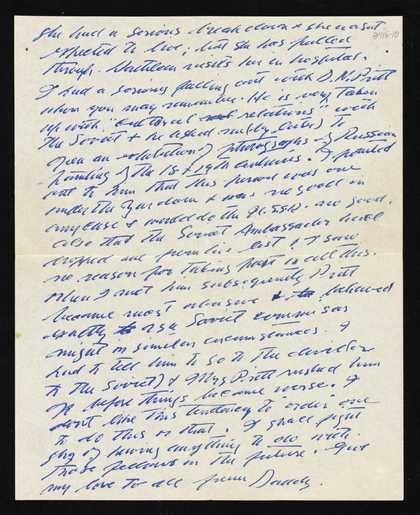 she had a serious breakdown & she wasn't
expected to live; but she has pulled
through. Kathleen visits her in hospital.
I had a serious falling out with D.N. Pritt
whom you may remember. He is very taken
up with "cultural relations" with
the Soviet & he asked me (by letter) to
open an exhibition of photographs of Russian
painting of the 18 & 19th centuries. I pointed
out to him that this period was one
under the Czardom & was no good in
any case & would do the USSR no good,
also that the Soviet Ambassador had
dropped me from his list & I saw
no reason for taking part in all this.
When I met him subsequently Pritt
became most abusive & behaved
exactly as a Soviet commissar
might in similar circumstances. I
had to tell him to go to the devil (or
to the Soviet) & Mrs Pritt rushed him
off before things became worse. I
don't like this tendency to "order" one
to do this or that. I shall fight
shy of having anything to do with
those fellows in the future. Give
my love to all from Daddy.